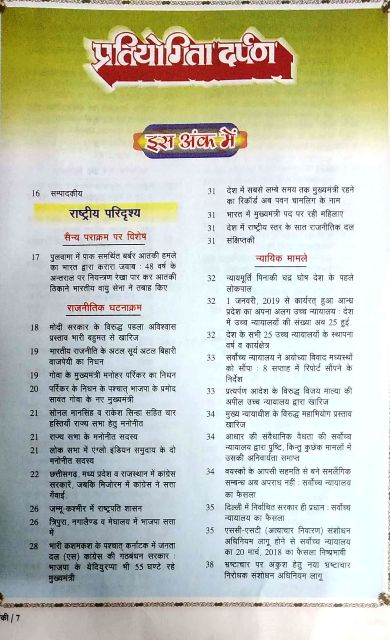 प्रतियोगिता दर्पण
इस अंक में
16 सम्पादकीय
राष्ट्रीय परिदृश्य
सैन्य पराक्रम पर विशेष
17 पुलवामा में पाक समर्थित बर्बर आतंकी हमले
का भारत द्वारा करारा जवाब : 48 वर्ष के
अन्तराल पर नियन्त्रण रेखा पार कर आतंकी
ठिकाने भारतीय वायु सेना ने तबाह किए
राजनीतिक घटनाक्रम
18 मोदी सरकार के विरुद्ध पहला अविश्वास
प्रस्ताव भारी बहुमत से खारिज
19 भारतीय राजनीति के अटल सूर्य अटल बिहारी
वाजपेयी का निधन
19 गोवा के मुख्यमंत्री मनोहर पर्रिकर का निधन
20 पर्रिकर के निधन के पश्चात् भाजपा के प्रमोद
सावंत गोवा के नए मुख्यमंत्री
21 सोनल मानसिंह व राकेश सिन्हा सहित चार
हस्तियाँ राज्य सभा हेतु मनोनीत
21 राज्य सभा के मनोनीत सदस्य
21 लोक सभा में एंग्लो इंडियन समुदाय के दो
मनोनीत सदस्य
22 छत्तीसगढ़, मध्य प्रदेश व राजस्थान में कांग्रेस
सरकारें, जबकि मिजोरम में कांग्रेस ने सत्ता
गँवाई
26 जम्मू-कश्मीर में राष्ट्रपति शासन
26 त्रिपुरा, नगालैण्ड व मेघालय में भाजपा सत्ता
में
28 भारी कशमकश के पश्चात् कर्नाटक में जनता
दल (एस) कांग्रेस की गठबंधन सरकार :
भाजपा के येदियुरप्पा भी 55 घण्टे रहे
मुख्यमंत्री
31 देश में सबसे लम्बे समय तक मुख्यमंत्री रहने
का रिकॉर्ड अब पवन चामलिंग के नाम
31 भारत में मुख्यमंत्री पद पर रही महिलाएं
31 देश में राष्ट्रीय स्तर के सात राजनीतिक दल
31 संक्षिप्तकी
न्यायिक मामले
32 न्यायमूर्ति पिनाकी चन्द्र घोष देश के पहले
लोकपाल
32 1 जनवरी, 2019 से कार्यरत् हुआ आन्ध्र
प्रदेश का अपना अलग उच्च न्यायालय : देश
में उच्च न्यायालयों की संख्या अब 25 हुई
32 देश के सभी 25 उच्च न्यायालयों के स्थापना
वर्ष व कार्यक्षेत्र
33 सर्वोच्च न्यायालय ने अयोध्या विवाद मध्यस्थों
को सौंपा : 8 सप्ताह में रिपोर्ट सौंपने के
निर्देश
33 प्रत्यर्पण आदेश के विरुद्ध विजय माल्या की
अपील उच्च न्यायालय द्वारा खारिज
34 मुख्य न्यायाधीश के विरुद्ध महाभियोग प्रस्ताव
खारिज
34 आधार की संवैधानिक वैधता की सर्वोच्च
न्यायालय द्वारा पुष्टि, किन्तु कुछेक मामलों में
उसकी अनिवार्यता समाप्त
34 वयस्कों के आपसी सहमति से बने समलैंगिक
सम्बन्ध अब अपराध नहीं : सर्वोच्च न्यायालय
का फैसला
35 दिल्ली में निर्वाचित सरकार ही प्रधान : सर्वोच्च
न्यायालय का फैसला
35 एससी-एसटी (अत्याचार निवारण) संशोधन
अधिनियम लागू होने से सर्वोच्च न्यायालय
का 20 मार्च, 2018 का फैसला निष्प्रभावी
38 भ्रष्टाचार पर अंकुश हेतु नया भ्रष्टाचार
निरोधक संशोधन अधिनियम लागू
की / 7